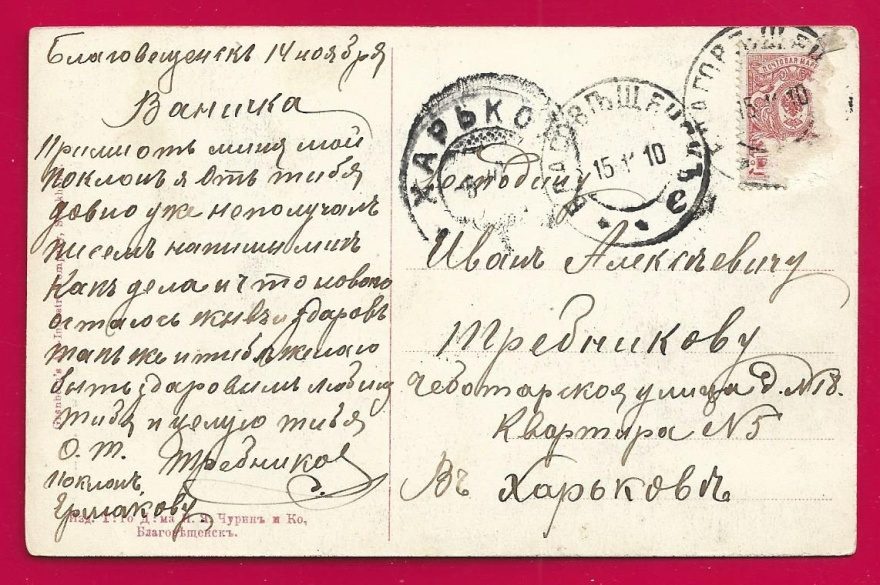 Благовещенскъ 14 ноября
Ваничка
Примиоть миня мой
поклонъ я Отъ тибя
давно уже неполучалъ
писемъ напиши мнъ
Какъ дела и что новаго
остаюсь живъ и здаровъ
такъ же и тибъ желаю
быть здаровимъ любящ
тибя и целую тибя
О. Т. Требников
поклонъ
Ермакову
Изд. Т-го Д-ма И. Я. Чуринъ и Ко,
Благовѣщенскъ.
ХАРЬКО
БЛАГОВѢЩЕНСКЪ
15 11 10
ПОЧТОВАЯ МАР
15 10
Господину
Иванъ Алексѣевичу
Требникову
Чеботарская улица д. №18.
Квартира №5
Въ Харьковъ